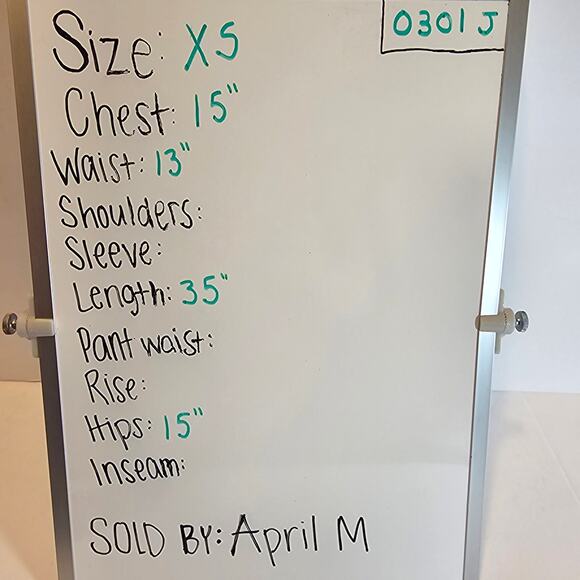 0301 J
Size: XS
Chest: 15"
Waist: 13"
Shoulders:
Sleeve:
Length: 35"
Pant waist:
Rise:
Hips: 15"
Inseam:
SOLD BY: April M